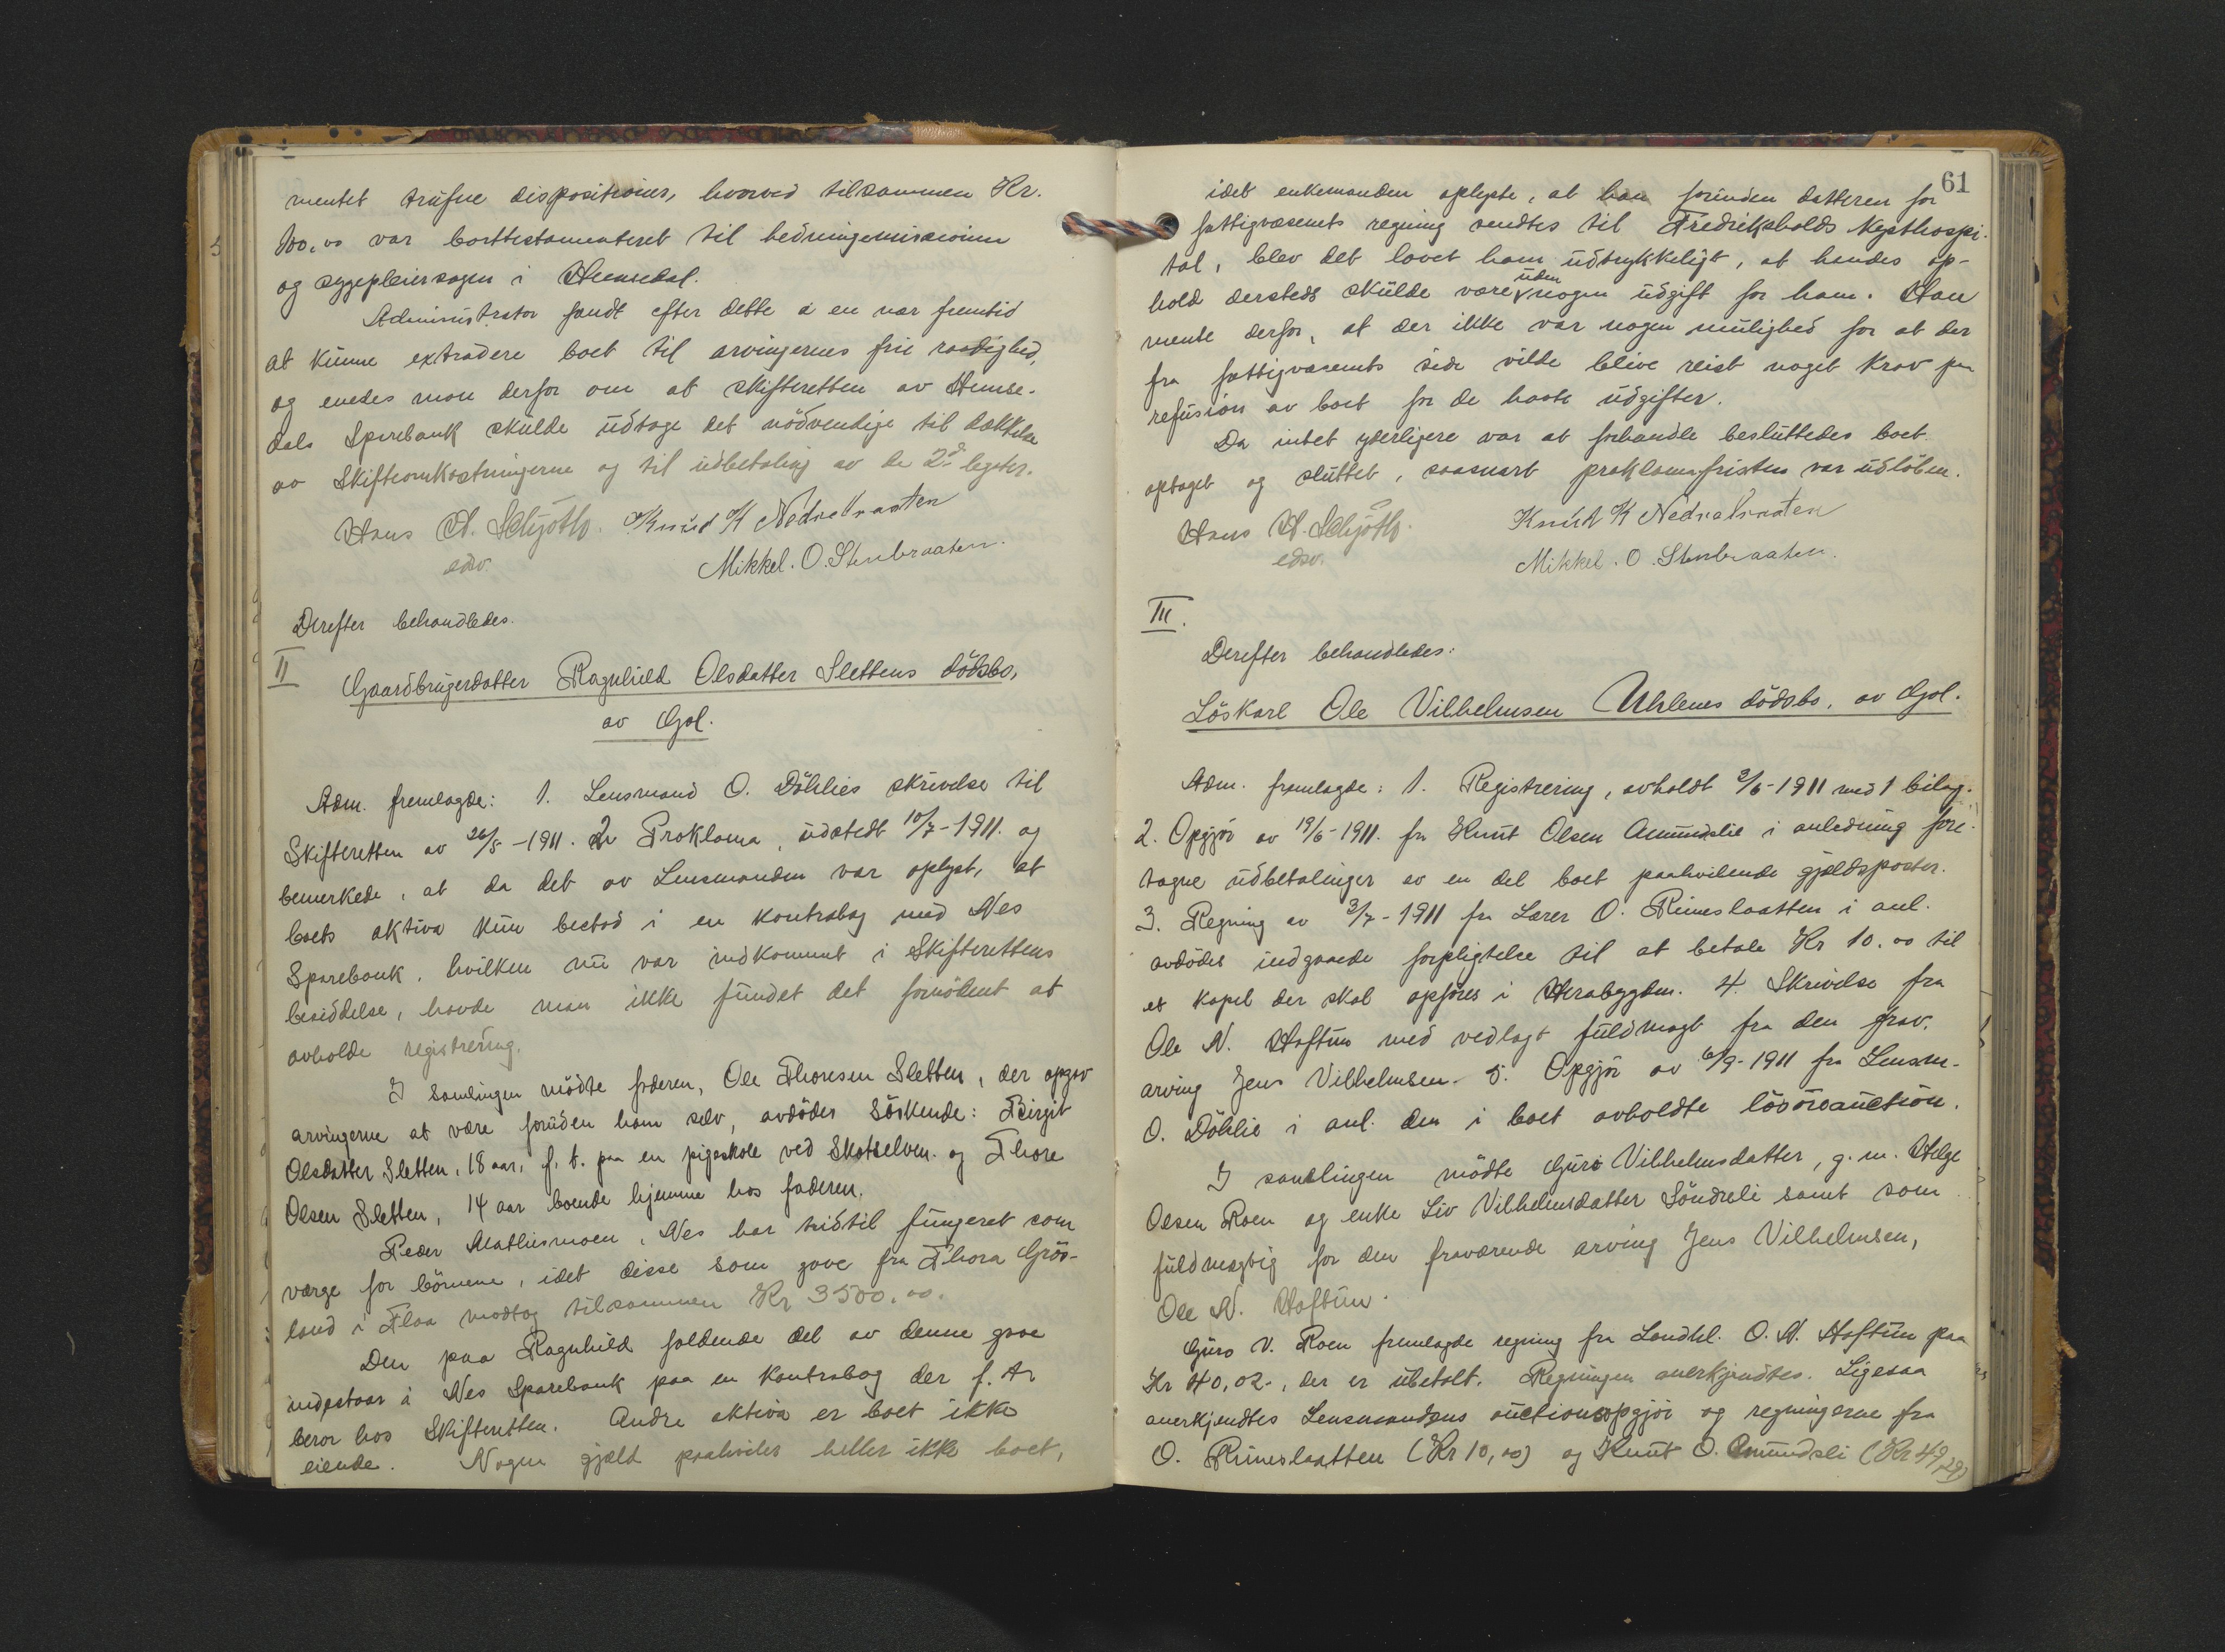 mentet trufne dispositioner, hvorved tilsammen Kr.
100,00 var borttestamenteret til hedningemissionen
og sygepleiersagen i Hemsedal.
Administrator fandt efter dette i en nær fremtid
at kunne extradere boet til arvingernes frie raadighed,
og enedes man derfor om at skifteretten av Hemse-
dals Sparebank skulde udtage det nödvendige til dækkelse
av Skifteomkostningerne og til udbetaling av de 2de legater.
Hans H. Schjöth. Knud K Nedrebraaten
edsv. Mikkel. O. Stenbraaten.
Derefter behandledes.
II
Gaardbrugerdatter Ragnhild Olsdatter Slettens dödsbo,
av Gol.
Adm. fremlagde: 1. Lensmand O. Döhlies skrivelse til
Skifteretten av 26/5-1911. 2 Proklama, udstedt 10/7-1911. og
bemerkede, at da det av Lensmanden var oplyst, at
boets aktiva kun bestod i en kontrabog med Nes
Sparebank, hvilken nu var indkommet i Skifterettens
besiddelse, havde man ikke fundet det fornödent at
avholde registrering.
I samlingen mödte faderen, Ole Thoresen Sletten, der opgav
arvingerne at være foruden ham selv, avdödes söskende: Birgit
Olsdatter Sletten, 18 aar, f. t. paa en pigeskole ved Skotselven. og Thore
Olsen Sletten, 14 aar boende hjemme hos faderen.
Peder Mathiesmoen, Nes har hidtil fungeret som
værge for börnene, idet disse som gave fra Thora Grös-
land i Flaa modtog tilsammen Kr 3500.00.
Den paa Ragnhild faldende del av denne gave
indestaar i Nes Sparebank paa en kontrabog der f. t.
beror hos Skifteretten. Andre aktiva er boet ikke
eiende. Nogen gjæld paahviler heller ikke boet,
61
idet enkemanden oplyste, at han foruden datteren for
fattigvæsenets regning sendtes til Fredrikshalds Nepthospi-
tal, blev det lovet ham udtrykkeligt, at hendes op-
hold dersteds skulde være uden nogen udgift for ham. Han
mente derfor, at der ikke var nogen mulighed for at der
fra fattigvæsenets side vilde blive reist noget krav paa
refusion av boet for de havte udgifter.
Da intet yderligere var at forhandle besluttedes boet
optaget og sluttet, saasnart proklamafristen var udlöben.
Hans H. Schjöth. Knud K Nedrebraaten
edsv. Mikkel. O. Stenbraaten.
III.
Derefter behandledes:
Löskarl Ole Vilhelmsen Uhlenes dödsbo, av Gol.
Adm. fremlagde: 1. Registrering, avholdt 2/6-1911 med 1 bilag.
2. Opgjör av 19/6-1911. fra Knut Olsen Amundslie i anledning fore-
tagne udbetalinger av en del boet paahvilende gjældsposter.
3. Regning av 3/7-1911 fra Lærer O. Runeslaatten i anl.
avdödes indgaaede forpligtelse til at betale Kr 10.00 til
et kapel der skal opföres i Herabygden. 4. Skrivelse fra
Ole N. Haftun med vedlagt fuldmagt fra den frav.
arving Jens Vilhelmsen. 5. Opgjör av 6/9-1911 fra Lensm.
O. Döhlie i anl. den i boet avholdte lösöreauction.
I samlingen mödte Guro Vilhelmsdatter, g. m. Helge
Olsen Roen og enke Liv Vilhelmsdatter Söndreli samt som
fuldmægtig for den fraværende arving Jens Vilhelmsen,
Ole N. Haftun.
Guro V. Roen fremlagde regning fra Landhl. O. N. Haftun paa
Kr 40,02-, der er ubetalt. Regningen anerkjendtes. Ligesaa
anerkjendtes Lensmandens auctionsopgjör og regningerne fra
O. Runeslaatten (Kr 10,00) og Knut O. Amundsli (Kr 49,29)